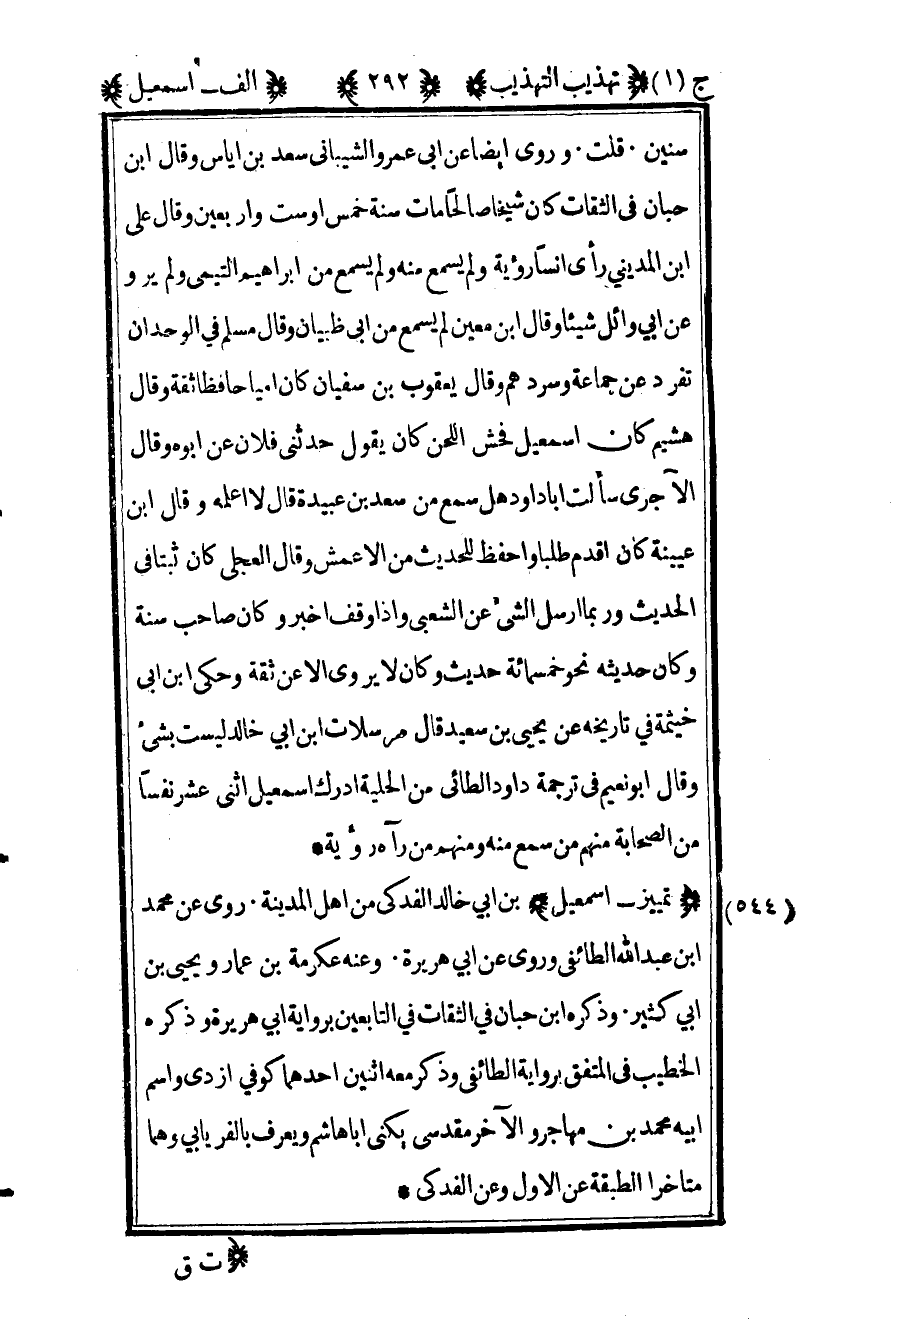 ج (١) ﴿ تهذيب التهذيب ﴾ ﴿ ٢٩٢ ﴾ ﴿ الف ـ اسمعيل ﴾
سنين · قلت · و روى ايضا عن ابى عمرو الشيبانى سعد بن اياس وقال ابن
حبان فى الثقات كان شيخا صالحا مات سنة خمس اوست واربعين وقال على
ابن المديني رأى انساً رؤية ولم يسمع منه ولم يسمع من ابراهيم التيمى ولم يرو
عن ابي وائل شيئا وقال ابن معين لم يسمع من ابى ظبيان وقال مسلم في الوحدان
تفرد عن جماعة وسردهم وقال يعقوب بن سفيان كان اميا حافظا ثقة وقال
هشيم كان اسمعيل فحش اللحن كان يقول حدثنى فلان عن ابوه وقال
الآجرى سألت اباداود هل سمع من سعد بن عبيدة قال لا اعلمه و قال ابن
عيينة كان اقدم طلبا واحفظ للحديث من الاعمش وقال العجلى كان ثبتا فى
الحديث وربما ارسل الشئ عن الشعبى واذا وقف اخبر و كان صاحب سنة
وكان حديثه نحو خمسمائة حديث وكان لا يروى الا عن ثقة وحكى ابن ابى
خيثمة في تاريخه عن يحيى بن سعيد قال مرسلات ابن ابي خالد ليست بشئ
وقال ابونعيم فى ترجمة داود الطائى من الحلية ادرك اسمعيل اثنى عشر نفساً
من الصحابة منهم من سمع منه ومنهم من رآه رؤية *
(٥٤٤) ﴿ تمييز ـ اسمعيل ﴾ بن ابي خالد الفدكى من اهل المدينة · روى عن محمد
ابن عبدالله الطائفى وروى عن ابي هريرة · وعنه عكرمة بن عمار و يحيى بن
ابي كثير · وذكره ابن حبان في الثقات في التابعين برواية ابي هريرة و ذكره
الخطيب فى المتفق برواية الطائفى وذكر معه اثنين احدهما كوفي ازدى واسم
ابيه محمد بن مهاجر و الآخر مقدسى يكنى اباهاشم ويعرف بالفريابي وهما
متاخرا الطبقة عن الاول وعن الفدكى *
﴿ ت ق